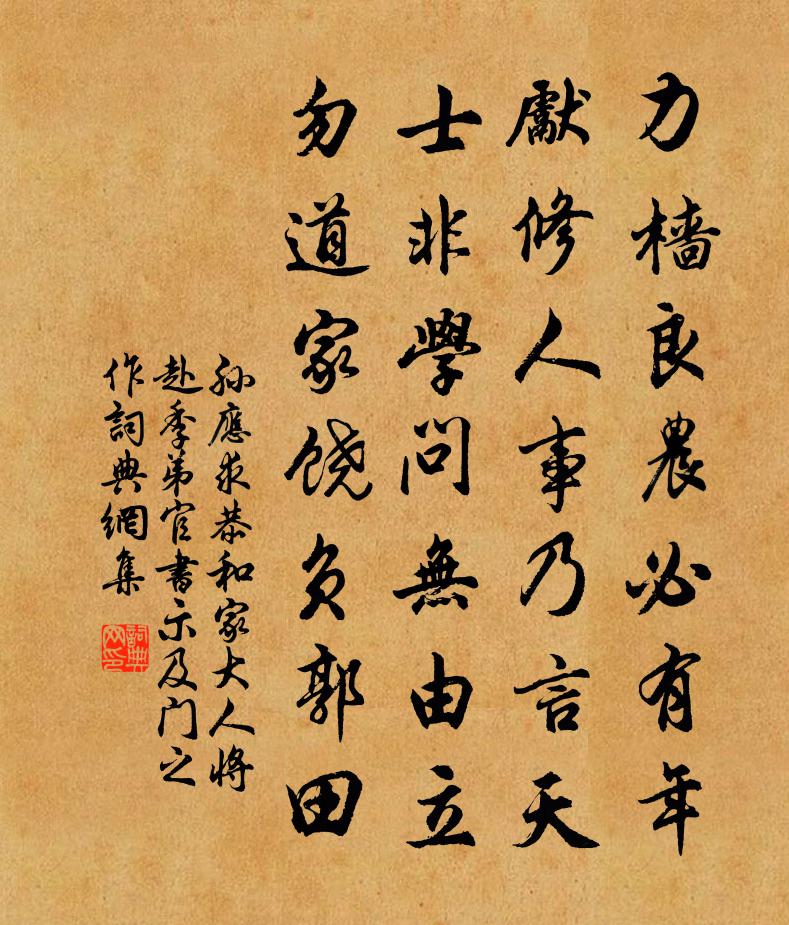 力檣良農必有年
獻修人事乃言天
士非學問無由立
勿道家饒负郭田
孙應求恭和家大人將
赴季弟官書示及门之
作詞典網集
詞典
网印